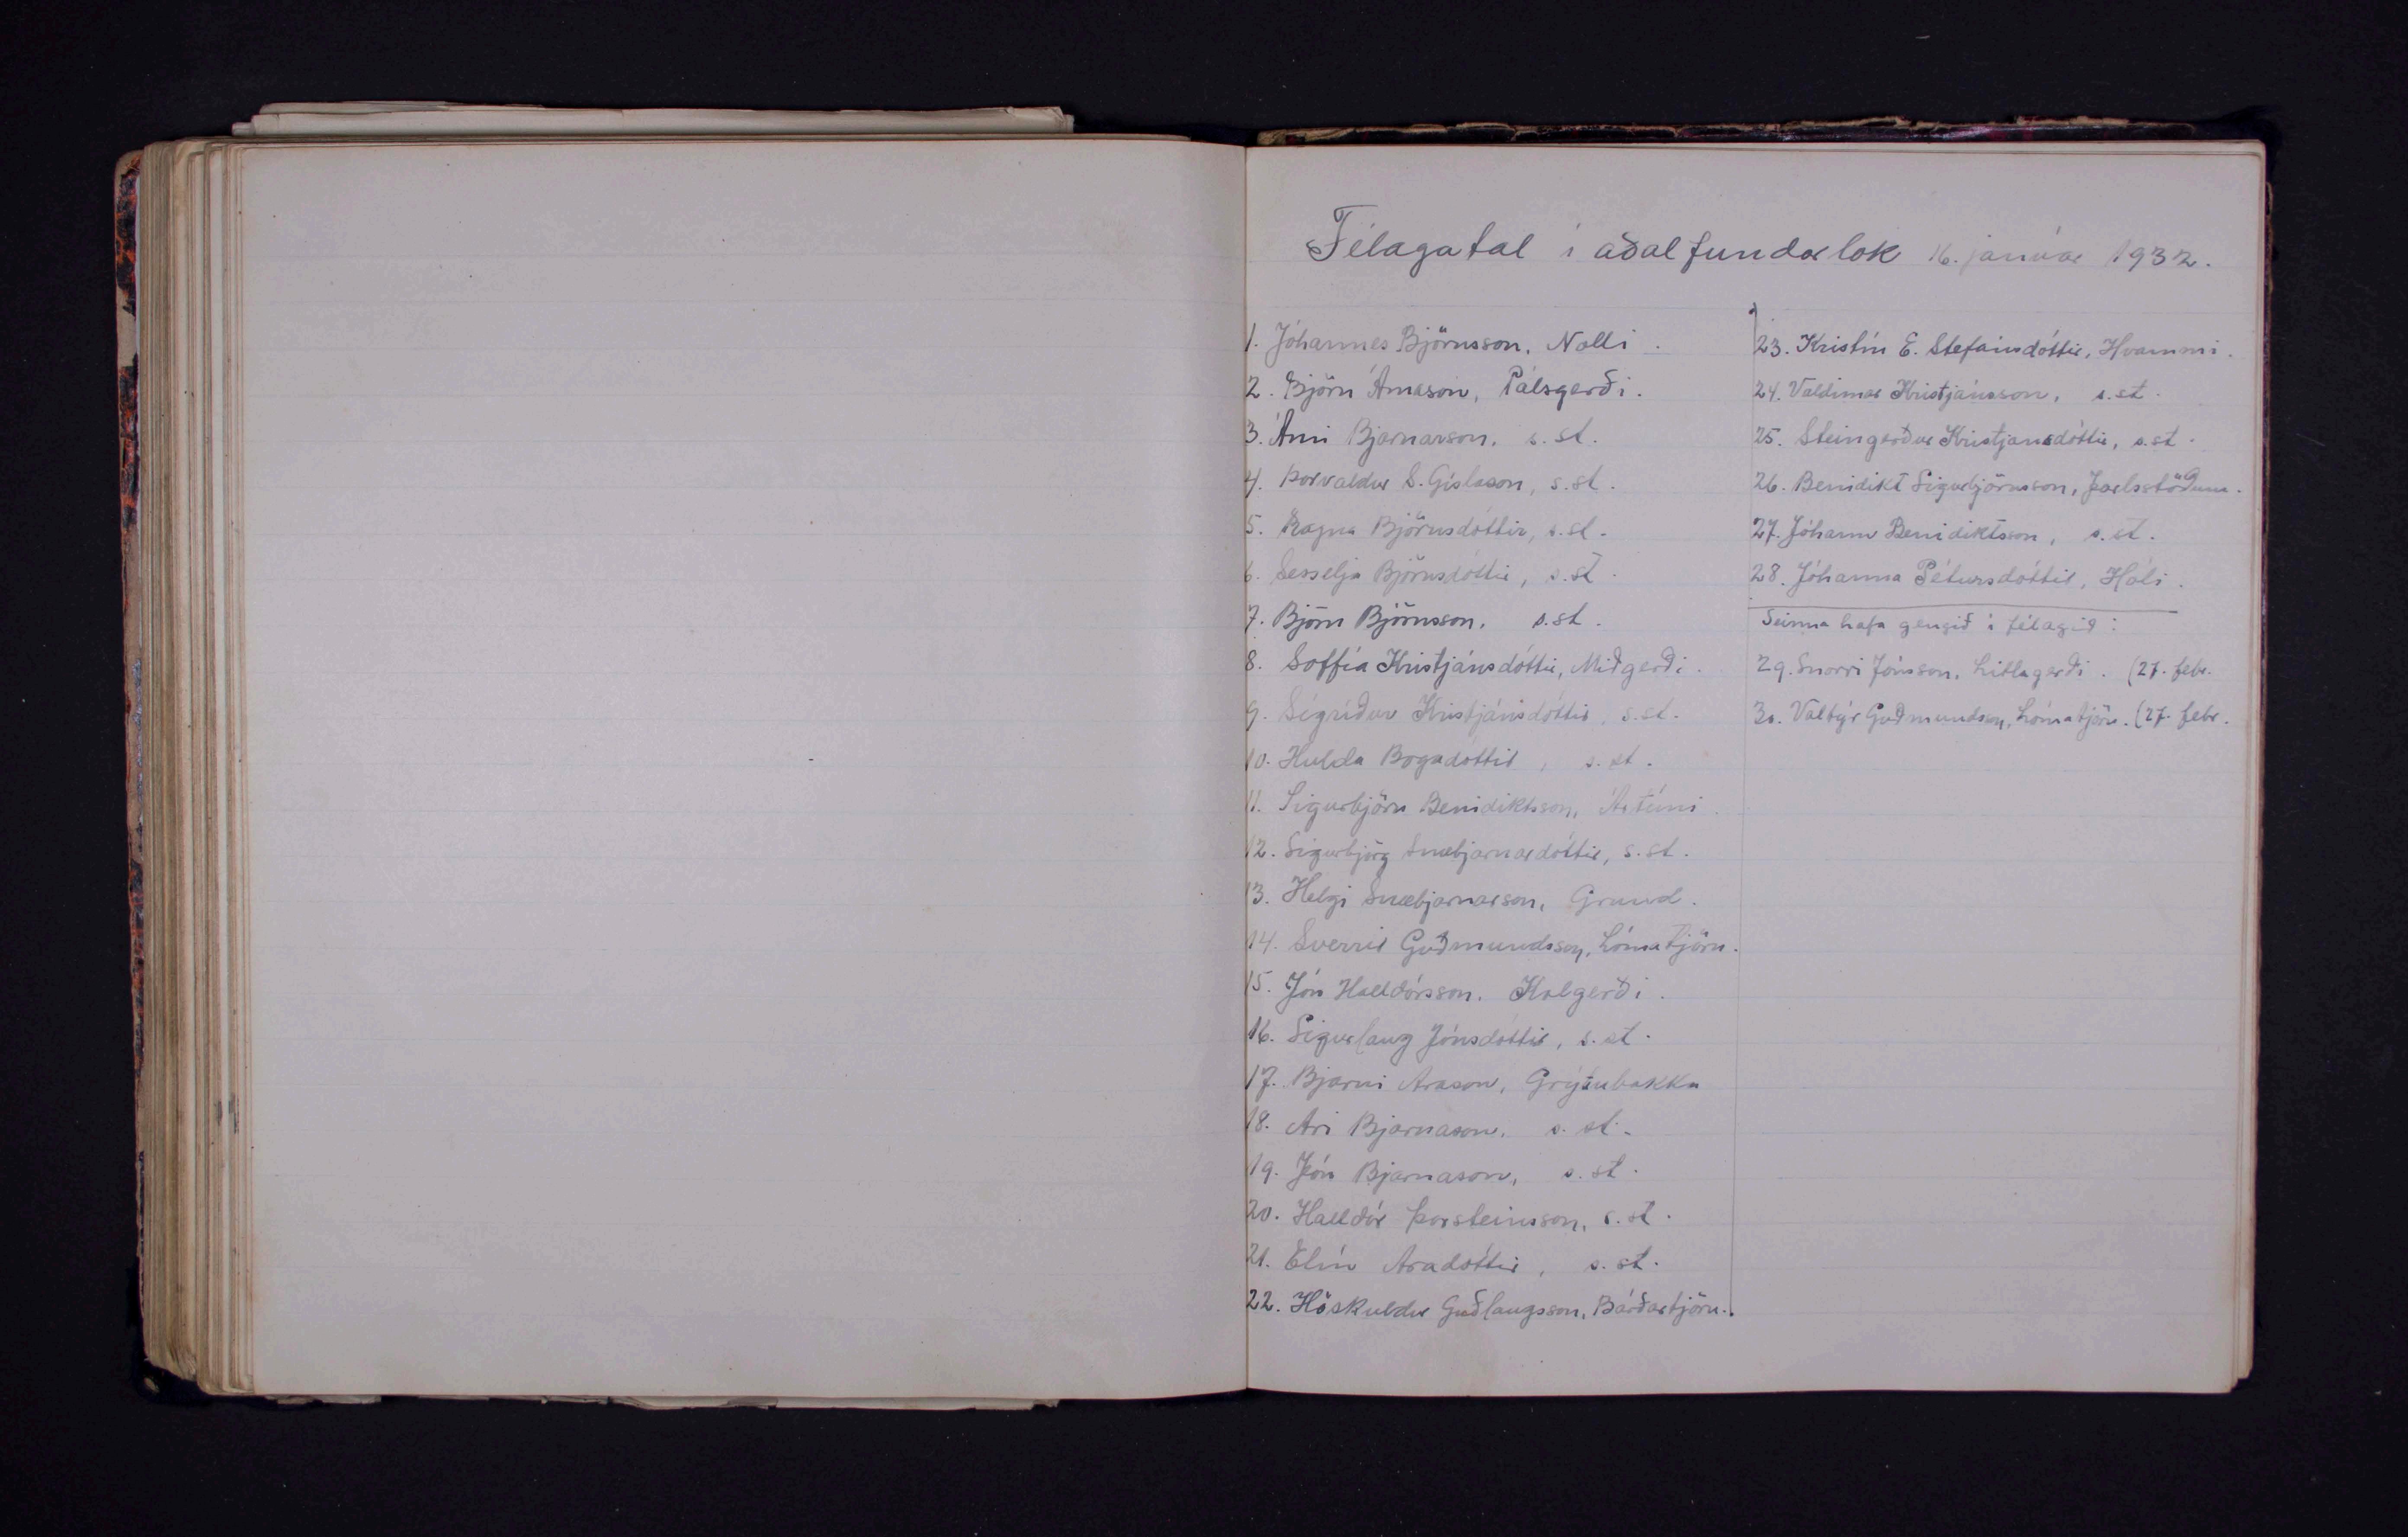 Félagatal í aðalfundarlok 16. janúar 1932.
1. Jóhannes Björnsson, Nolli.
2. Björn Árnason, Pálsgerði.
3. Árni Bjarnarson, s.st.
4. Þorvaldur S. Gíslason, s.st.
5. Ragna Björnsdóttir, s.st.
6. Sesselja Björnsdóttir, s.st.
7. Björn Björnsson, s.st.
8. Soffía Kristjánsdóttir, Miðgerði.
9. Sigríður Kristjánsdóttir, s.st.
10. Hulda Bogadóttir, s.st.
11. Sigurbjörn Benidiktsson, Ártúni.
12. Sigurbjörg Snæbjarnardóttir, s.st.
13. Helgi Snæbjarnarson, Grund.
14. Sverrir Guðmundsson, Lómatjörn.
15. Jón Halldórsson, Kolgerði.
16. Sigurlaug Jónsdóttir, s.st.
17. Bjarni Arason, Grýtubakka
18. Ari Bjarnason, s.st.
19. Jón Bjarnason, s.st.
20. Halldór Þorsteinsson, s.st.
21. Elín Aradóttir, s.st.
22. Höskuldur Guðlaugsson, Bárðartjörn.
23. Kristín E. Stefánsdóttir, Hvammi.
24. Valdimar Kristjánsson, s.st.
25. Steingerður Kristjansdóttir, s.st.
26. Benidikt Sigurbjörnsson, Jarlsstöðum.
27. Jóhann Benidiktsson, s.st.
28. Jóhanna Pétursdóttir, Hóli.
Seinna hafa gengið í félagið:
29. Snorri Jónsson, Litlagerði. (27. febr.
30. Valtýr Guðmundson, Lómatjörn. (27. febr.